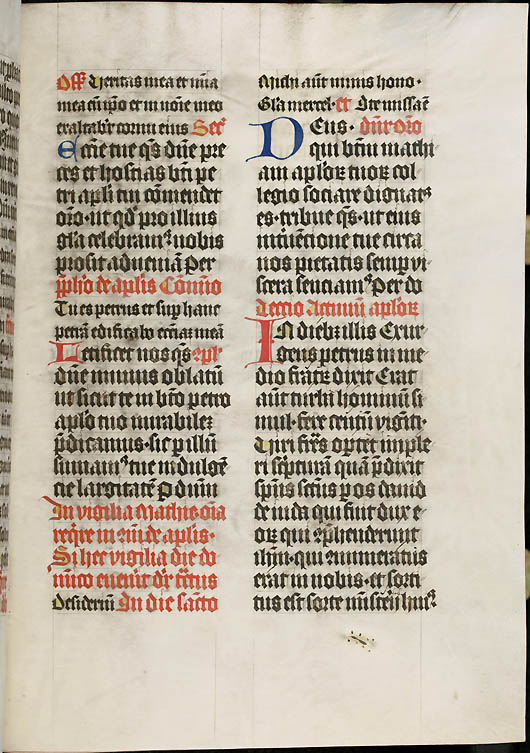 Off Veritas mea et mĩa
mea cũ ipõ et in noĩe meo
exaltabit̃ cornu eius Secr̃
Ecc̃ie tue q̃s dñe pre
ces et hostias bt̃i pe
tri apl̃i tui cõmendet
or̃o · ut qd̃ pro illius
gl̃a celebram⁹ nobis
prosit ad veniã Per
p̃f̃o de apl̃is Cõmuño
Tu es petrus et sup̃ hanc
petrã edificabo ecc̃iaz meã
Letificet nos q̃s
dñe munus oblatũ
ut sicut te in bt̃o petro
apl̃o tuo mirabilez
p̃dicamus · sic p̃ illũ
sumam⁹ tue indulgẽ
cie largitatẽ P dñm
In vigilia Mathie oĩa
req̃re in cõi de apl̃is ·
Si hec vigilia die do
mĩco eveñit dr̃ t̃cius
Desideriũ In die sãcto
Michi aũt nimis hono ·
Gl̃a mercel · et Dr̃e missaẽ
DEus · dñr̃ or̃o
qui bt̃m mathi
am apl̃oꝝ tuoꝝ col
legio sociare dignat⁹
es · tribue q̃s · ut eius
int̃vẽcione tue circa
nos pietatis semp̃ vi
scera senciam⁹ Per do
Leccio Actuum apl̃oꝝ
IN dieb⁹ illis Exur
gens petrus in me
dio fratrũ dixit Erat
aũt turba hominũ si
mul · fere centũ viginti ·
Viri fr̃es oportet imple
ri sc̃pturã quã p̃dixit
sp̃us sc̃tus p̃ os david
de iuda qui fuit dux e
oꝝ qui cõp̃henderunt
ih̃m · qui cõnumeratus
erat in nobis · et sorti
tus est sorte mĩsterij hui⁹